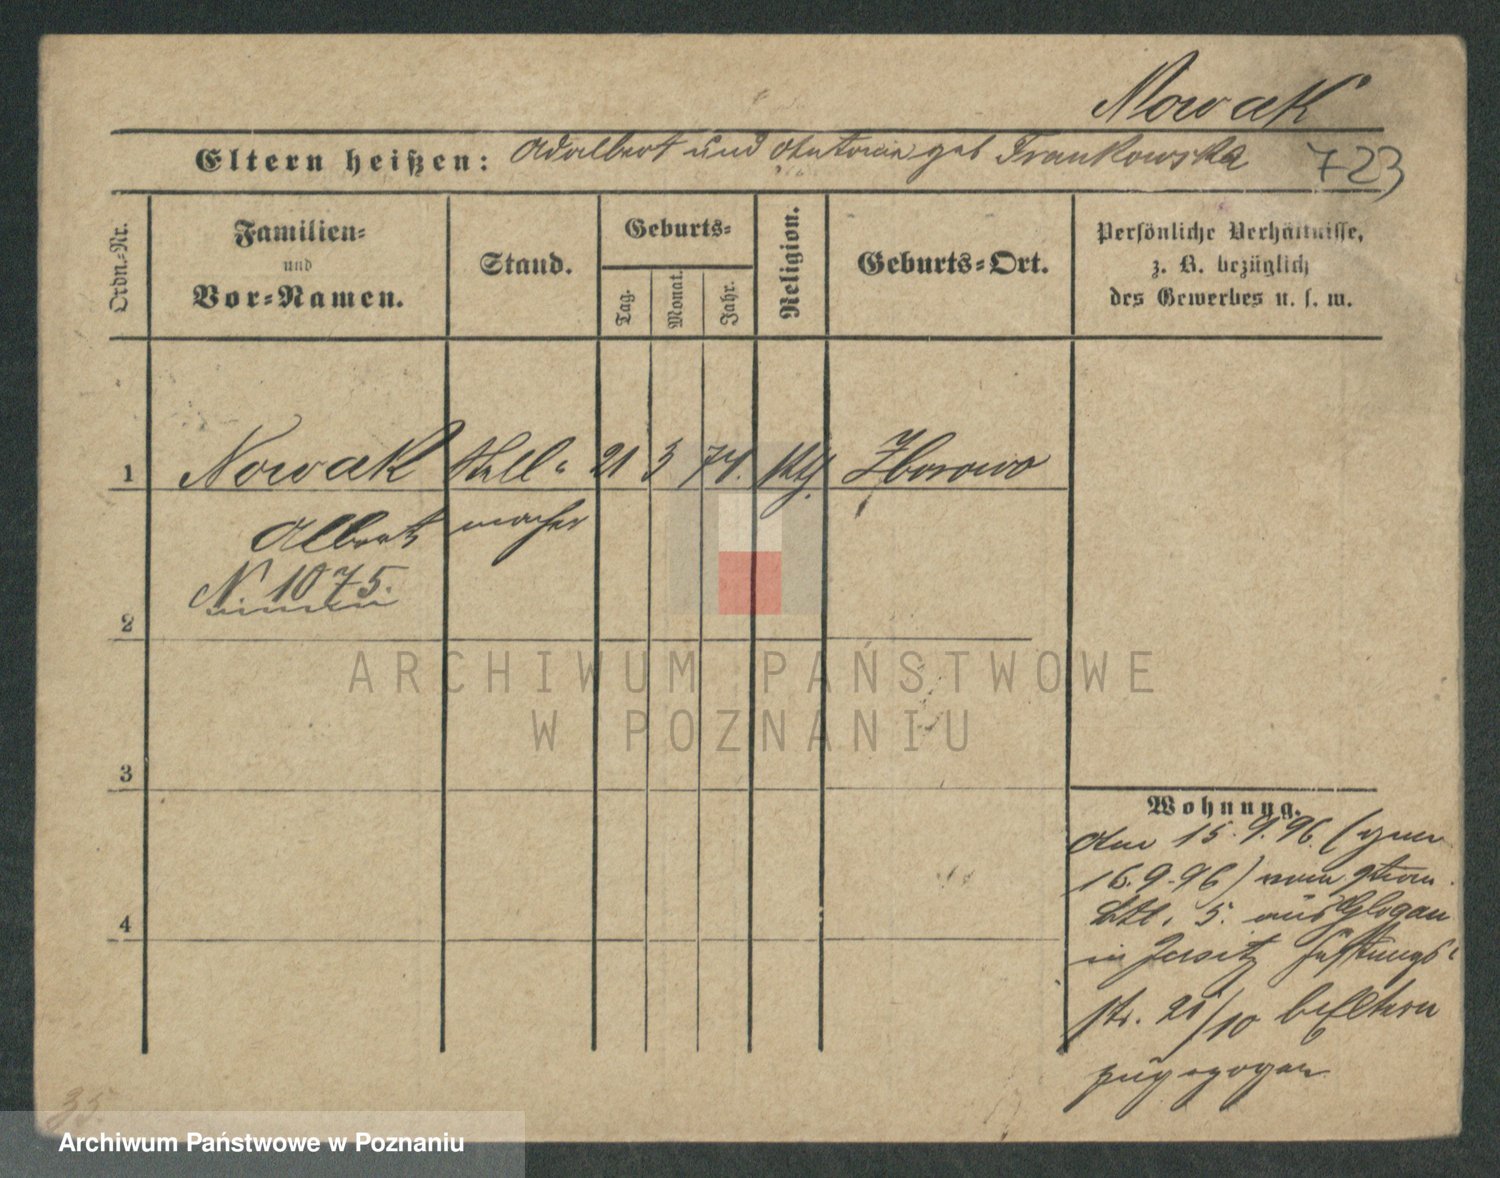 Nowak
Eltern heißen: Adalbert und Antonie geb Frankowska 723
Ordn.-Nr.
Familien-
und
Vor-Namen.
Stand.
Geburts-
Tag.
Monat.
Jahr.
Religion.
Geburts-Ort.
Persönliche Verhältnisse,
z. B. bezüglich
des Gewerbes u. s. w.
1 Nowak Stell- 21 3 74. Kth. Zborowo
Albert macher
N 1075.
2
ARCHIWUM PAŃSTWOWE
W POZNANIU
3
Wohnung.
Am 15.9.96. (gem
16.9.96) vom
5. aus Glogau
in Jersitz
str. 21/10 bei Eltern
zugezogen
4
35
Archiwum Państwowe w Poznaniu